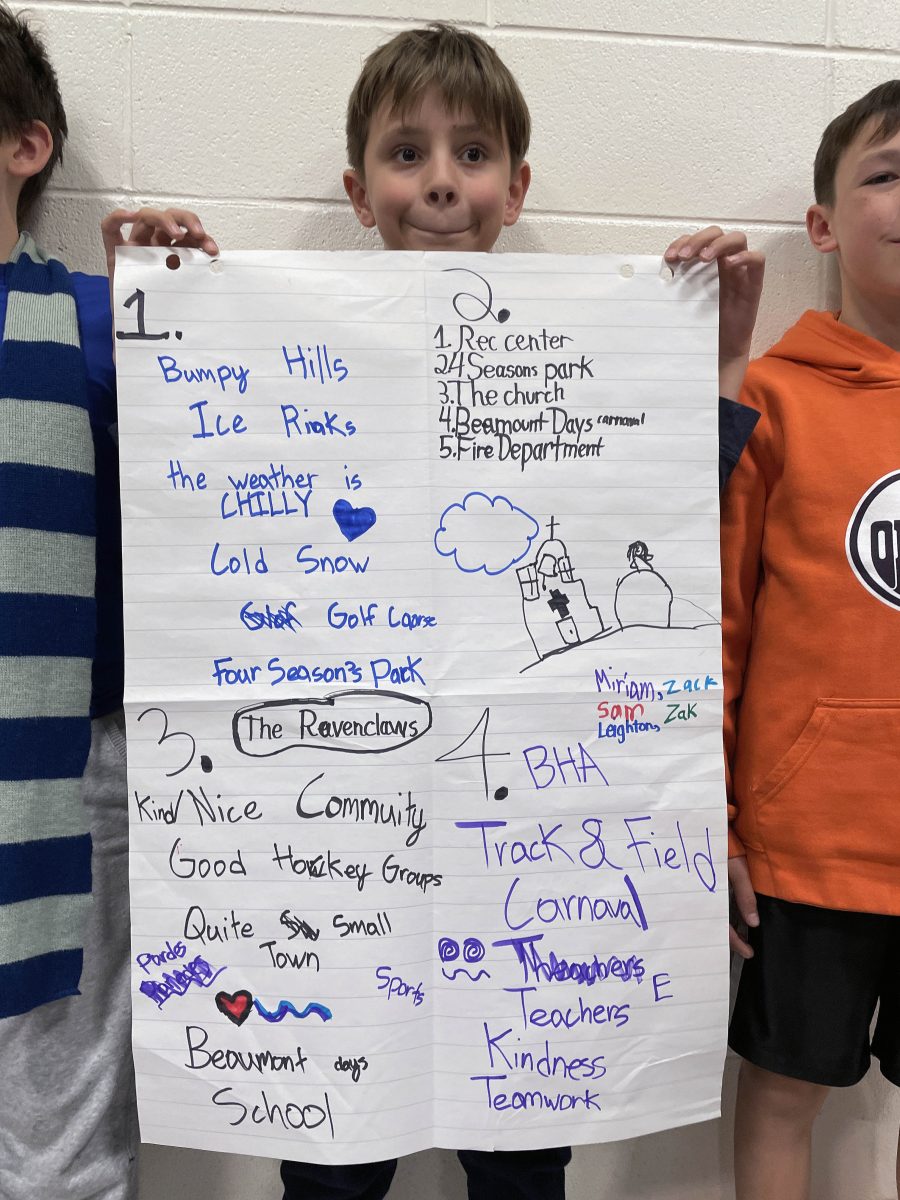 1.
Bumpy Hills
Ice Rinks
the weather is
CHILLY
Cold Snow
Golf Coarse
Four Season's Park
2.
1. Rec center
2.4 Seasons park
3. The church
4. Beamount Days carnaval
5. Fire Department
Miriam, Zack
Sam Zak
Leighton,
3. The Ravenclaws
Kind/Nice Commuity
Good Hockey Groups
Quite Small
Town
Pardes
Sports
Beaumont days
School
4. BHA
Track & Field
Carnaval
Teachers E
Kindness
Teamwork